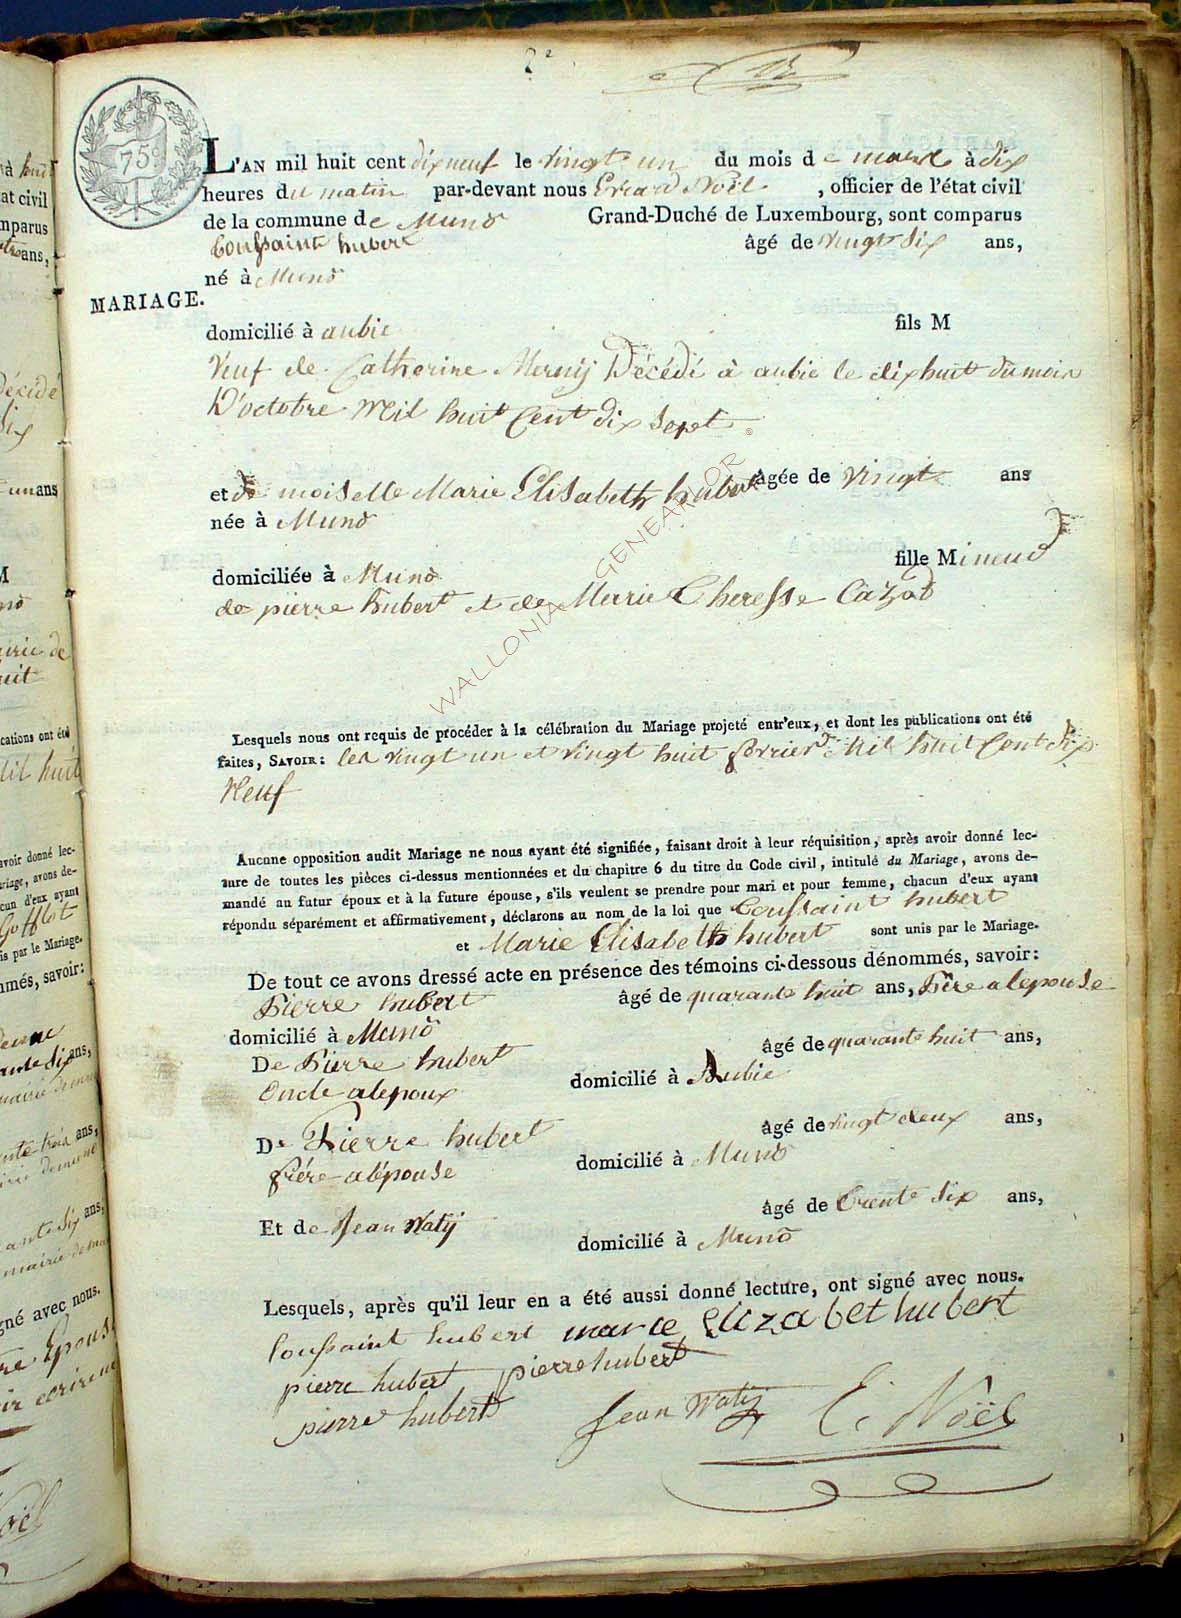 2e
75c
L'AN mil huit cent dix neuf le vingt un du mois de mars à dix
heures du matin par-devant nous Erard Noël, officier de l'état civil
de la commune de Muno Grand-Duché de Luxembourg, sont comparus
Toussaint hubert âgé de vingt six ans,
né à Muno
MARIAGE.
domicilié à aubie fils M
Veuf de Catherine Mernij Décédé à aubie le dixhuit du mois
D'octobre Mil huit Cent dix sept
et de moiselle Marie Elisabeth hubert âgée de vingt ans
née à Muno
domiciliée à Muno fille Mineur
de pierre hubert et de Marie Theresse Cazot
WALLONIA GENEARLOR ©
Lesquels nous ont requis de procéder à la célébration du Mariage projeté entr'eux, et dont les publications ont été
faites, SAVOIR: les vingt un et vingt huit fevrier Mil huit Cent dix
Neuf
Aucune opposition audit Mariage ne nous ayant été signifiée, faisant droit à leur réquisition, après avoir donné lec-
ture de toutes les pièces ci-dessus mentionnées et du chapitre 6 du titre du Code civil, intitulé du Mariage, avons de-
mandé au futur époux et à la future épouse, s'ils veulent se prendre pour mari et pour femme, chacun d'eux ayant
répondu séparément et affirmativement, déclarons au nom de la loi que Toussaint hubert
et Marie Elisabeth hubert sont unis par le Mariage.
De tout ce avons dressé acte en présence des témoins ci-dessous dénommés, savoir:
Pierre hubert âgé de quarante huit ans, Père a lepouse
domicilié à Muno
De Pierre hubert âgé de quarante huit ans,
Oncle alepoux domicilié à Aubie
De Pierre hubert âgé de vingt deux ans,
frére alépouse domicilié à Muno
Et de Jean Watij âgé de trente six ans,
domicilié à Muno
Lesquels, après qu'il leur en a été aussi donné lecture, ont signé avec nous.
toussaint hubert marie Elizabet hubert
pierre hubert pierre hubert
pierre hubert Jean Watij E. Noël